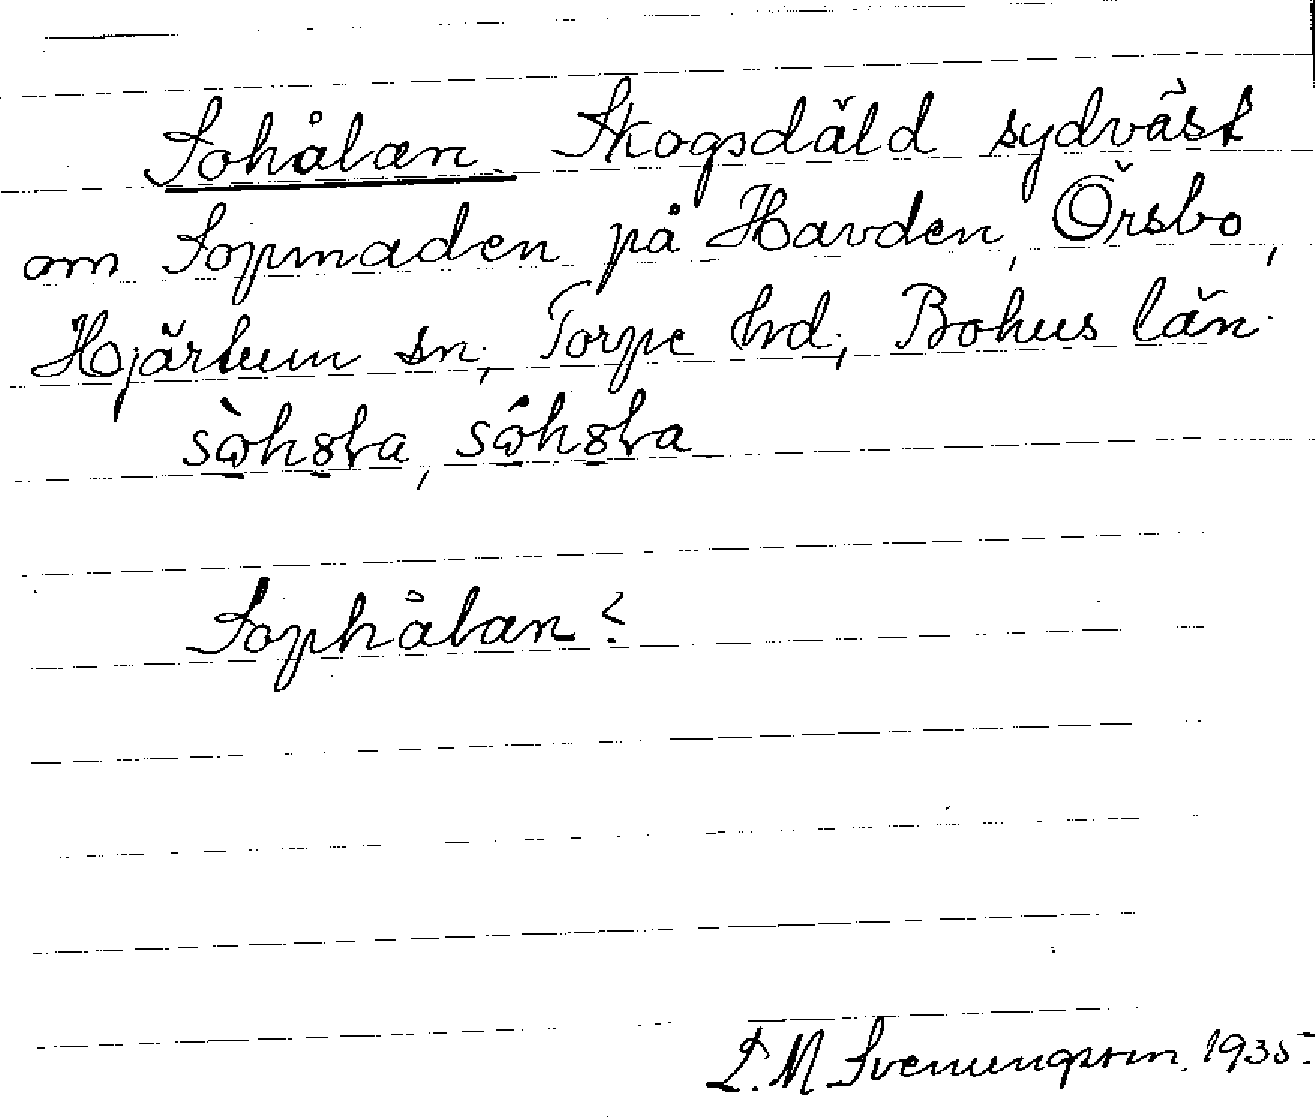 Sohålan Skogsdäld sydväst
om Sopmaden på Havden, Örsbo,
Hjärtum sn; Torpe hd; Bohus län.
Sophålan?
L. M Svenungsson. 1935.